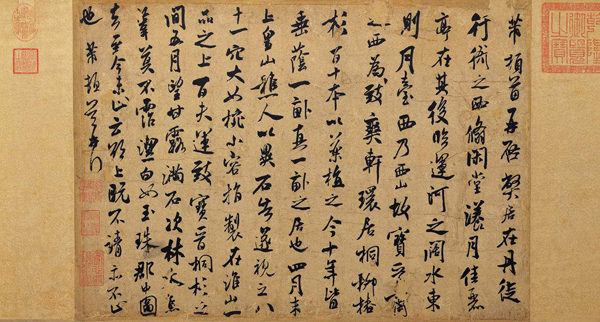 芾頓首再啓弊居在丹徒
行衙之西翛閑堂漾月佳麗
亭在其後臨運河之闊水東
則月臺西乃西山故寶晉齋
之西為致爽軒環居桐柳椐
杉百十本以藥植之今十年皆
垂蔭一畝真一畝之居也四月末
上皇山樵人以異石告遂視之八
十一穴大如椀小容指製在淮山一
品之上百夫運致寶晉桐杉之
間五月望甘露滿石次林木焦
葦莫不霑潔白如玉珠郡中圖
去至今未止云欲上既不請亦不止
也芾頓首